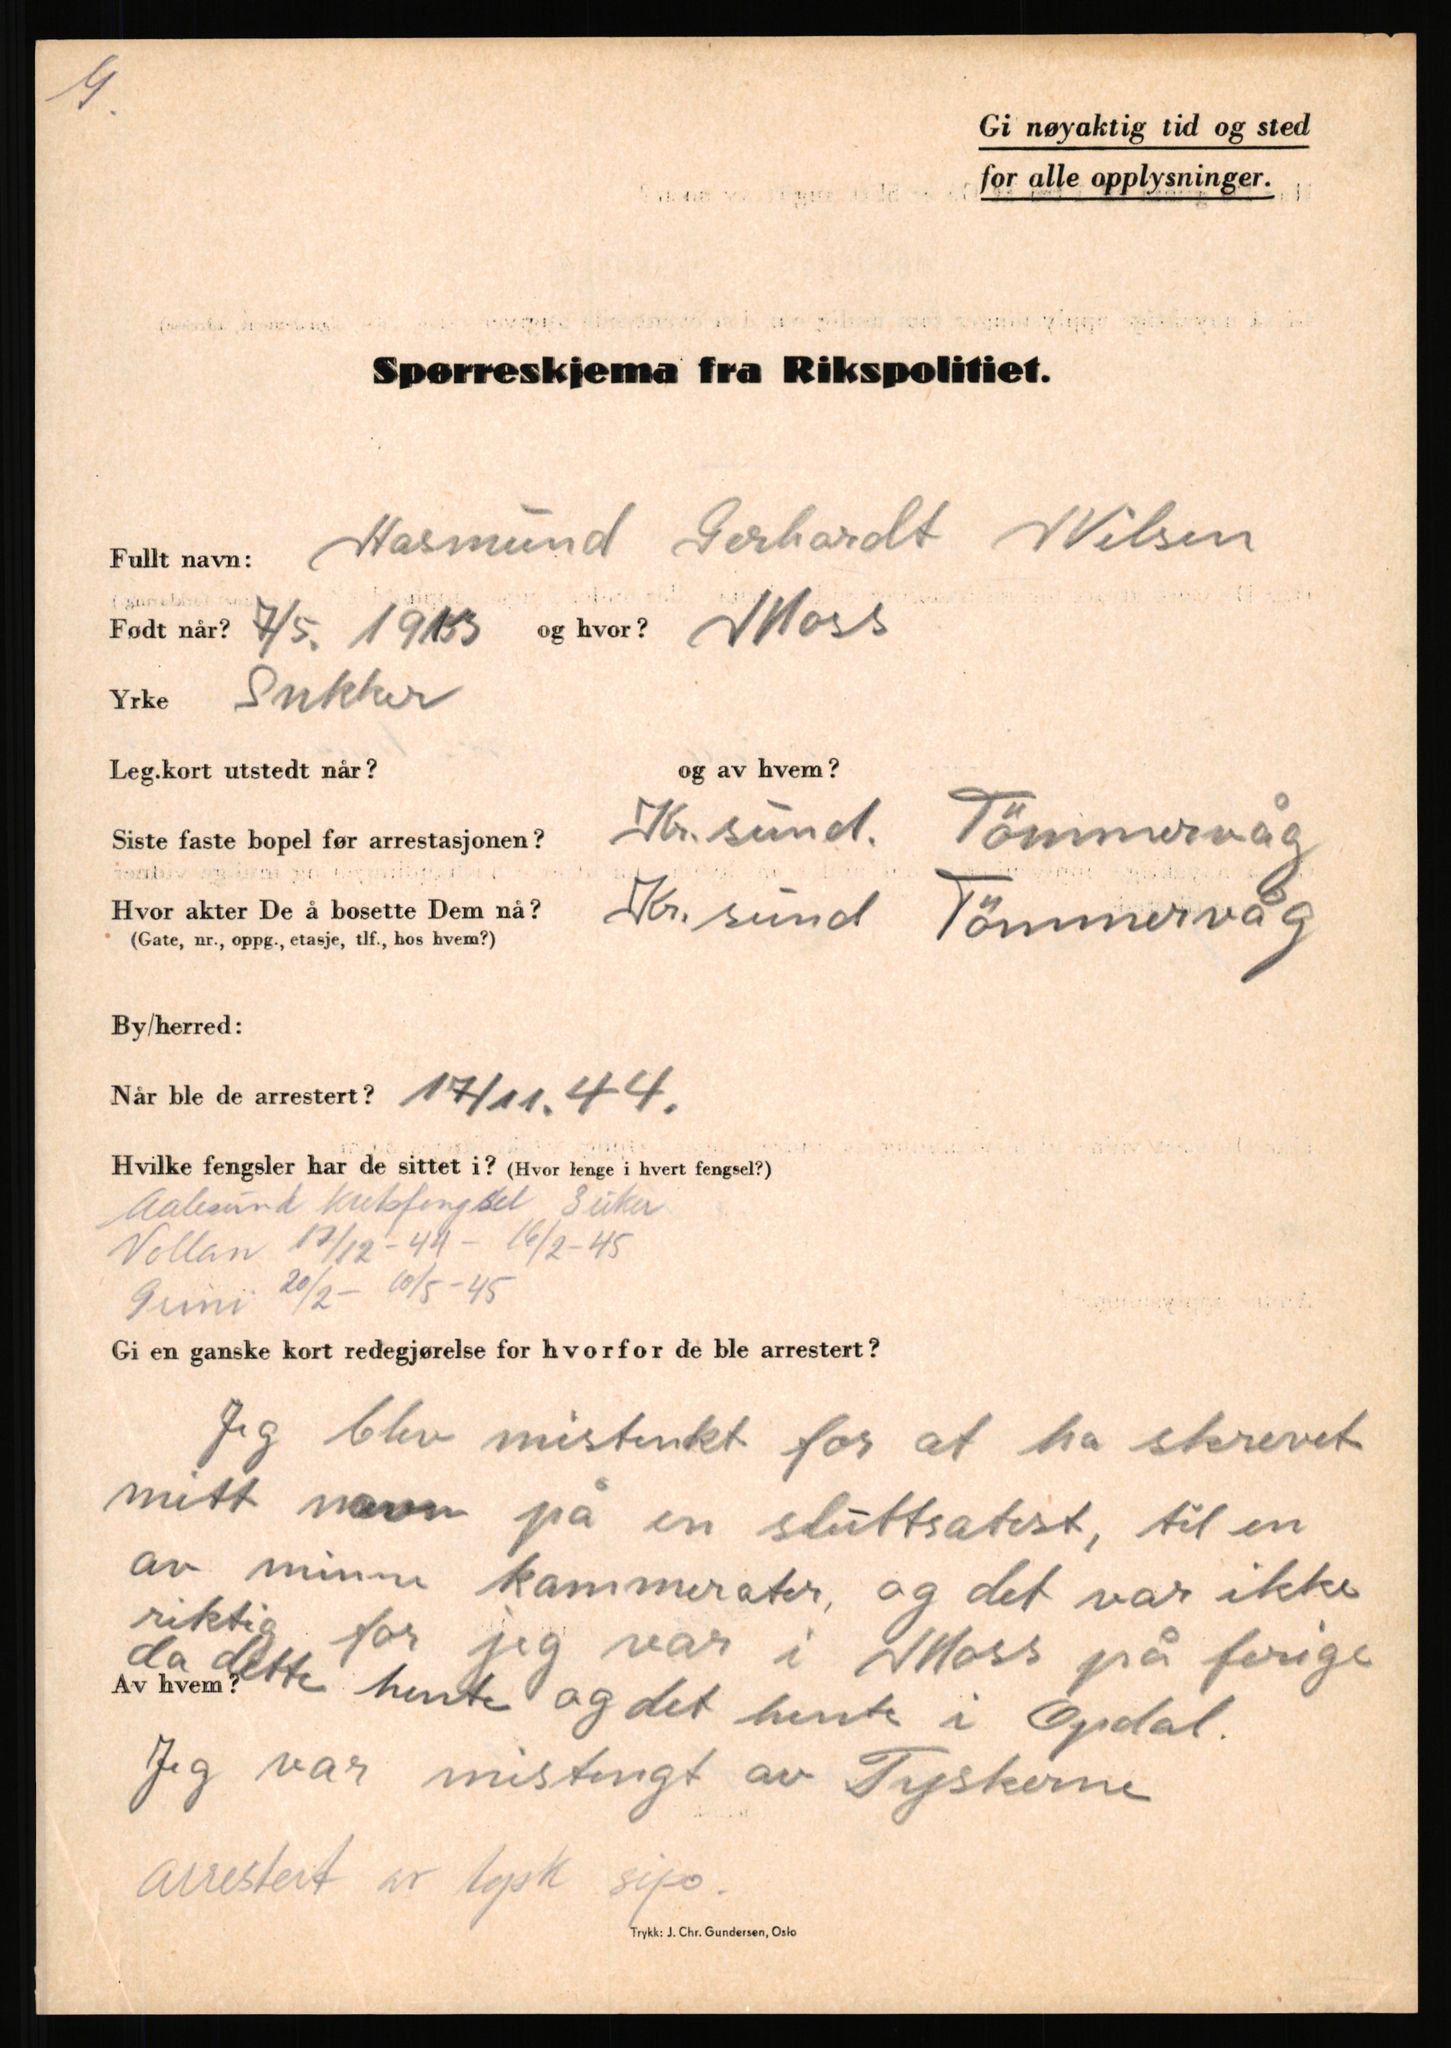 G.
Gi nøyaktig tid og sted
for alle opplysninger.
Spørreskjema fra Rikspolitiet.
Fullt navn: Gerhardt Nilsen
Født når? 7/5. 1913 og hvor? Moss
Yrke Snikker
Leg.kort utstedt når? og av hvem?
Siste faste bopel før arrestasjonen? Kr. sund. Tömmervåg
Hvor akter De å bosette Dem nå? Kr. sund Tömmervåg
(Gate, nr., oppg., etasje, tlf., hos hvem?)
By/herred:
Når ble de arrestert? 17/11. 44.
Hvilke fengsler har de sittet i? (Hvor lenge i hvert fengsel?)
Aalesund Kretsfengsel 3 uker
Vollan 17/12-44 - 16/2-45
Grini 20/2 - 10/5-45
Gi en ganske kort redegjørelse for hvorfor de ble arrestert?
Jeg blev mistenkt for at ha skrevet
mitt navn på en sluttsatest, til en
av minne kammerater, og det var ikke
riktig for jeg var i Moss på ferige
da dette hente og det hente i Opdal.
Av hvem?
Jeg var mistengt av Tyskerne
Arrestert av tysk sipo.
Trykk: J. Chr. Gundersen, Oslo